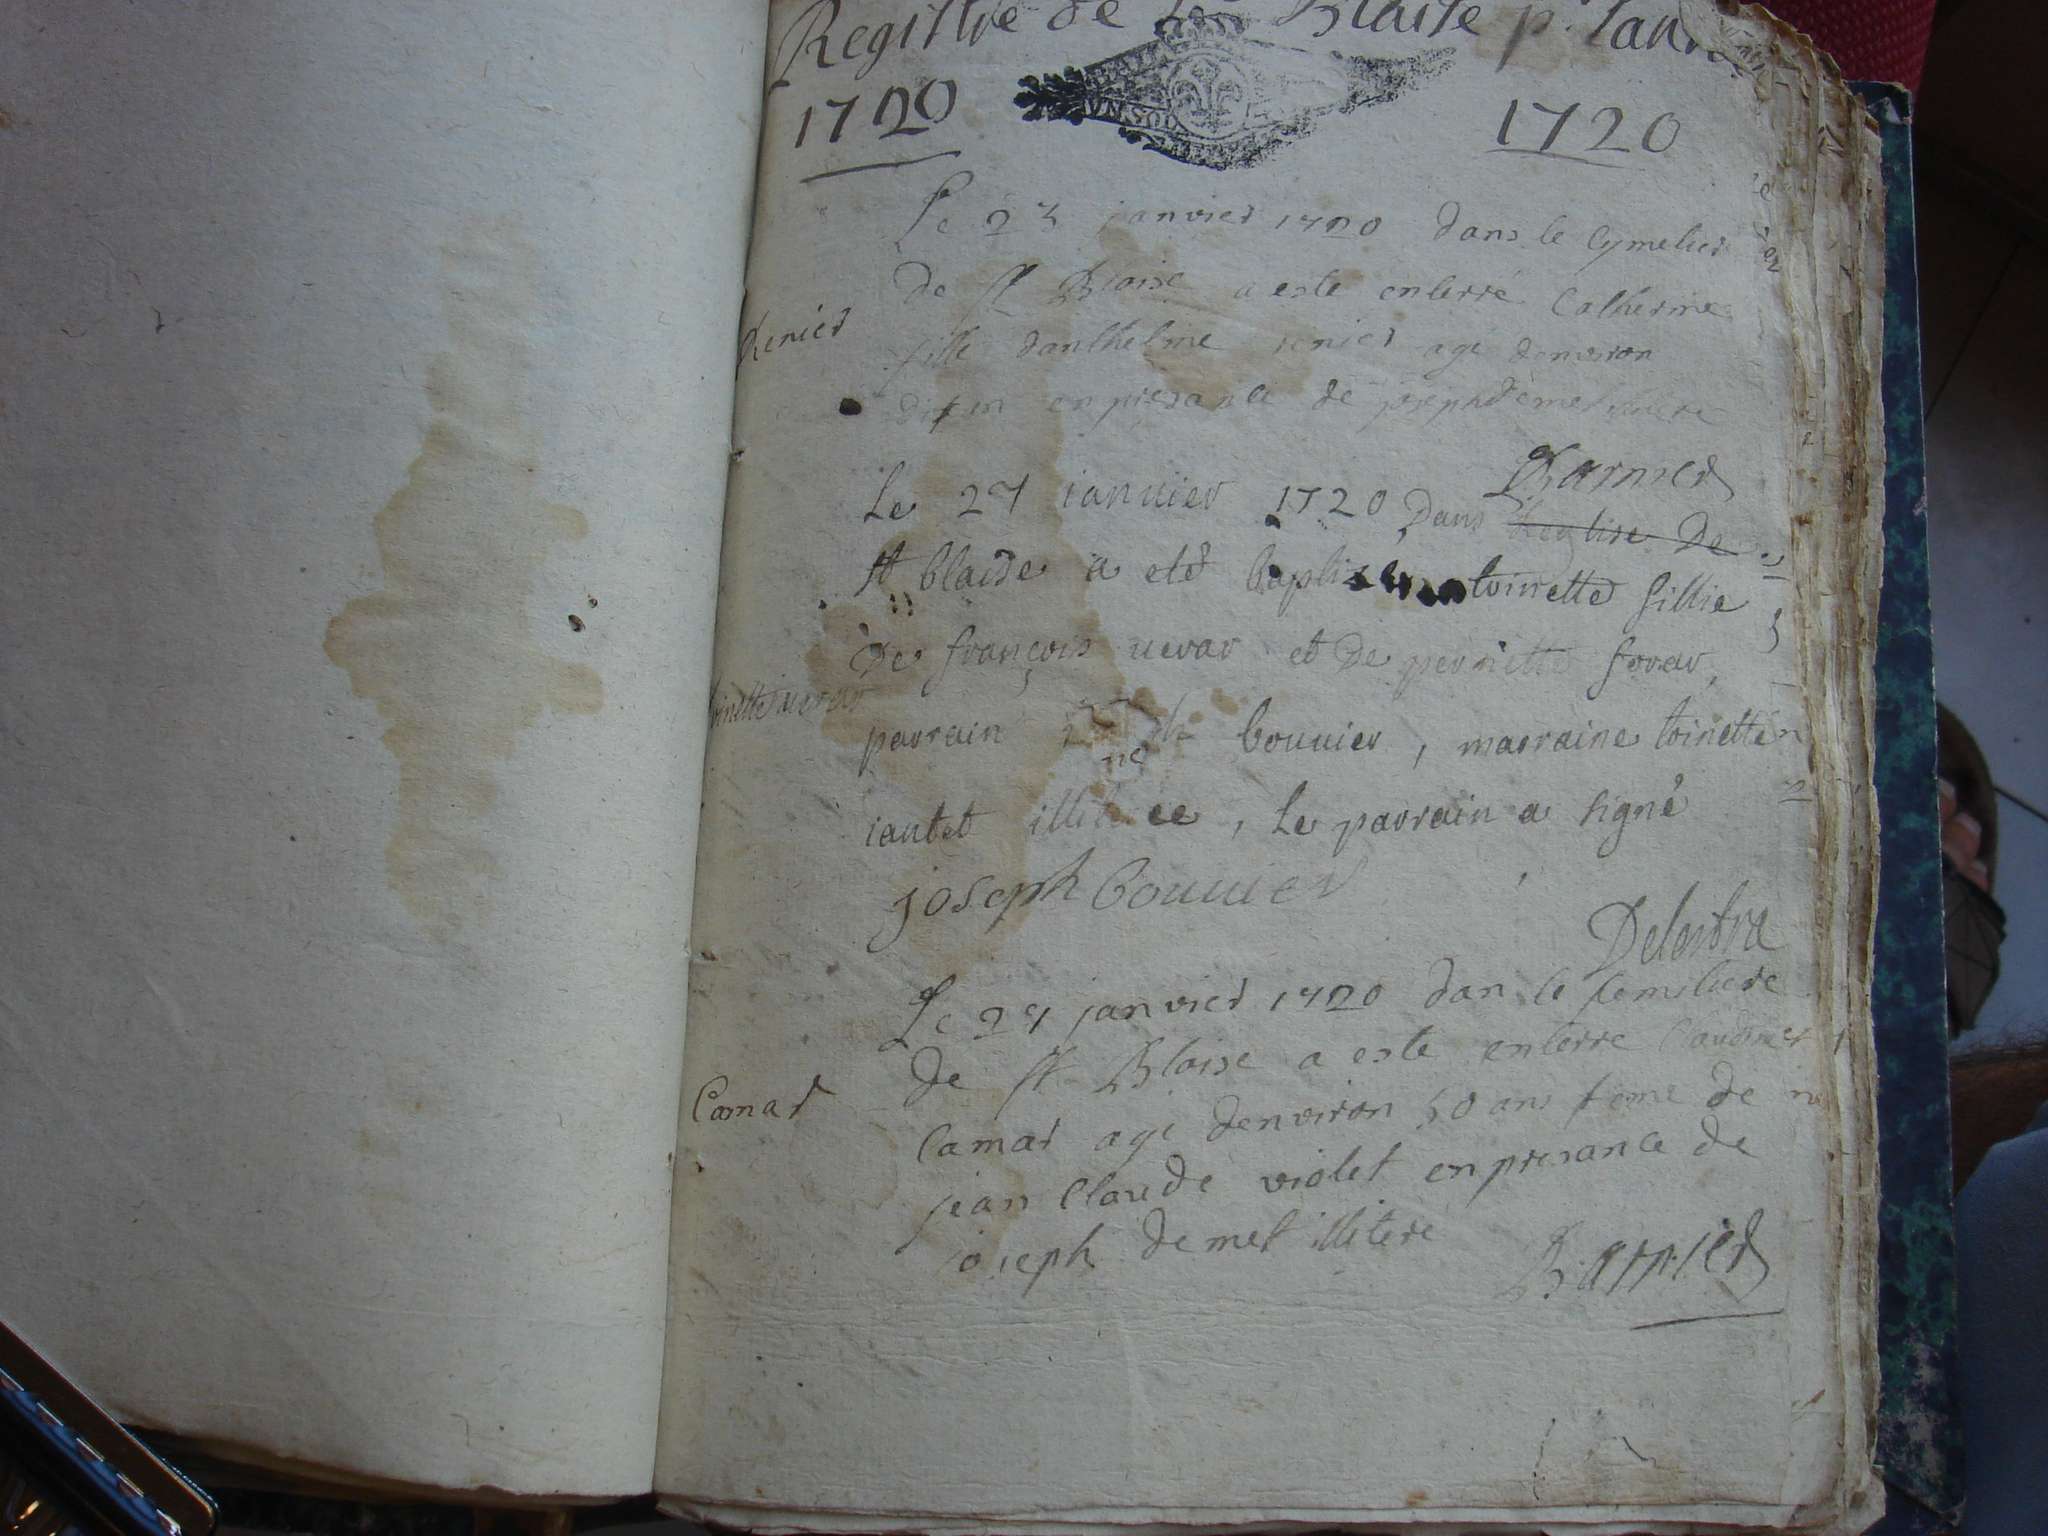 Registre de St Blaise pr lan
1720 1720
UN SOL
Le 23 janvier 1720 dans le Cymetier
de St Blaise a este enterré Catherine
Renier
fille danthelme renier age denviron
en presance de joseph demet illitere
Barnier
Le 27 ianuier 1720, Dans Leglise De
st blaise a eté baptisé toinette fillie
De françois uerar et De pernette forar,
toinette uerar
parrain bouuier, marraine toinette
iantet illiteree, Le parrain a signé
joseph bouuier
Delestra
Le 27 janvier 1720 dan le semetiere
de St Blaise a este enterre Claudine
Camar
Camar age denviron 50 ans feme de
jean Claude violet en presance de
joseph demet illiteré
Barnier